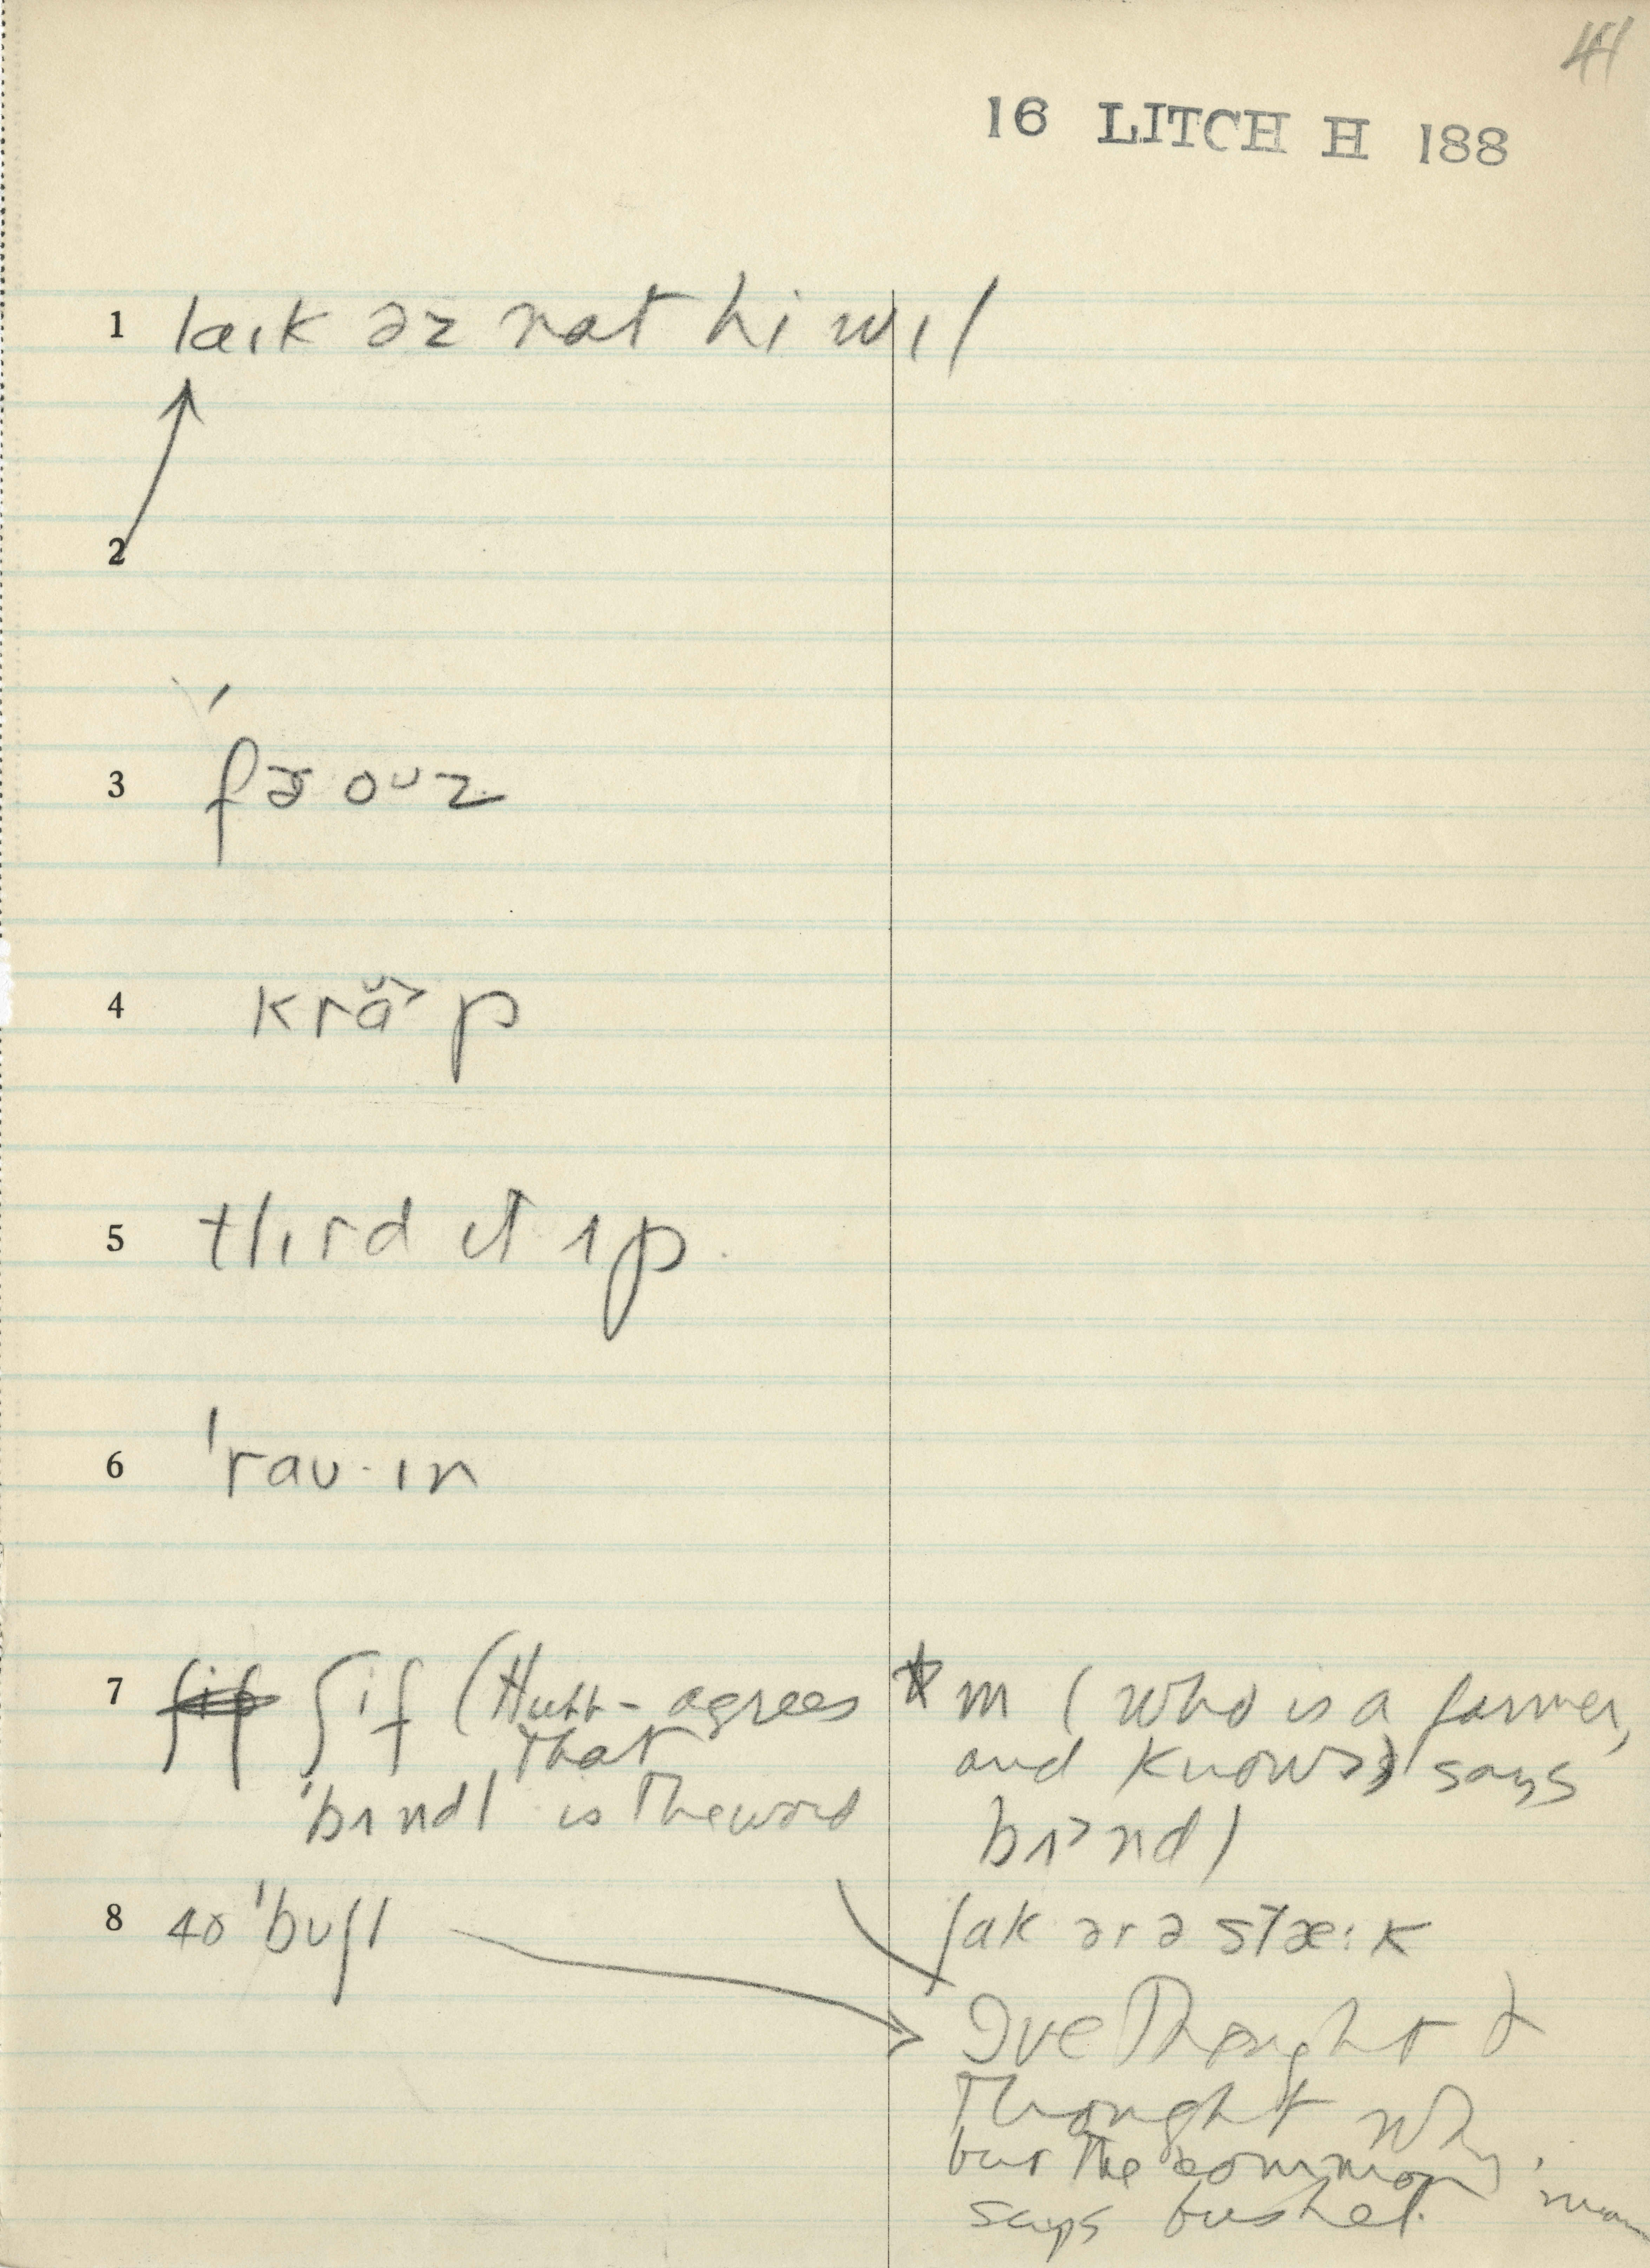 44
16 LITCH H 188
1 laɪk əz nat hi wɪl
2
3 ˈfɚ oᴜz
4 krɑ̆˃p
5 tʃɪrd ɪt ʌp
6 ˈraʊ·ɪn
7 ʃif (Hubb- agrees
that
ˈbʌndl is the word
* m (who is a farmer,
and knows) says
bʌ˃ndl
8 40 ˈbuʃl
lak ər ə stæːk
Ive Thought &
Thought why,
but the common man
says bushel.